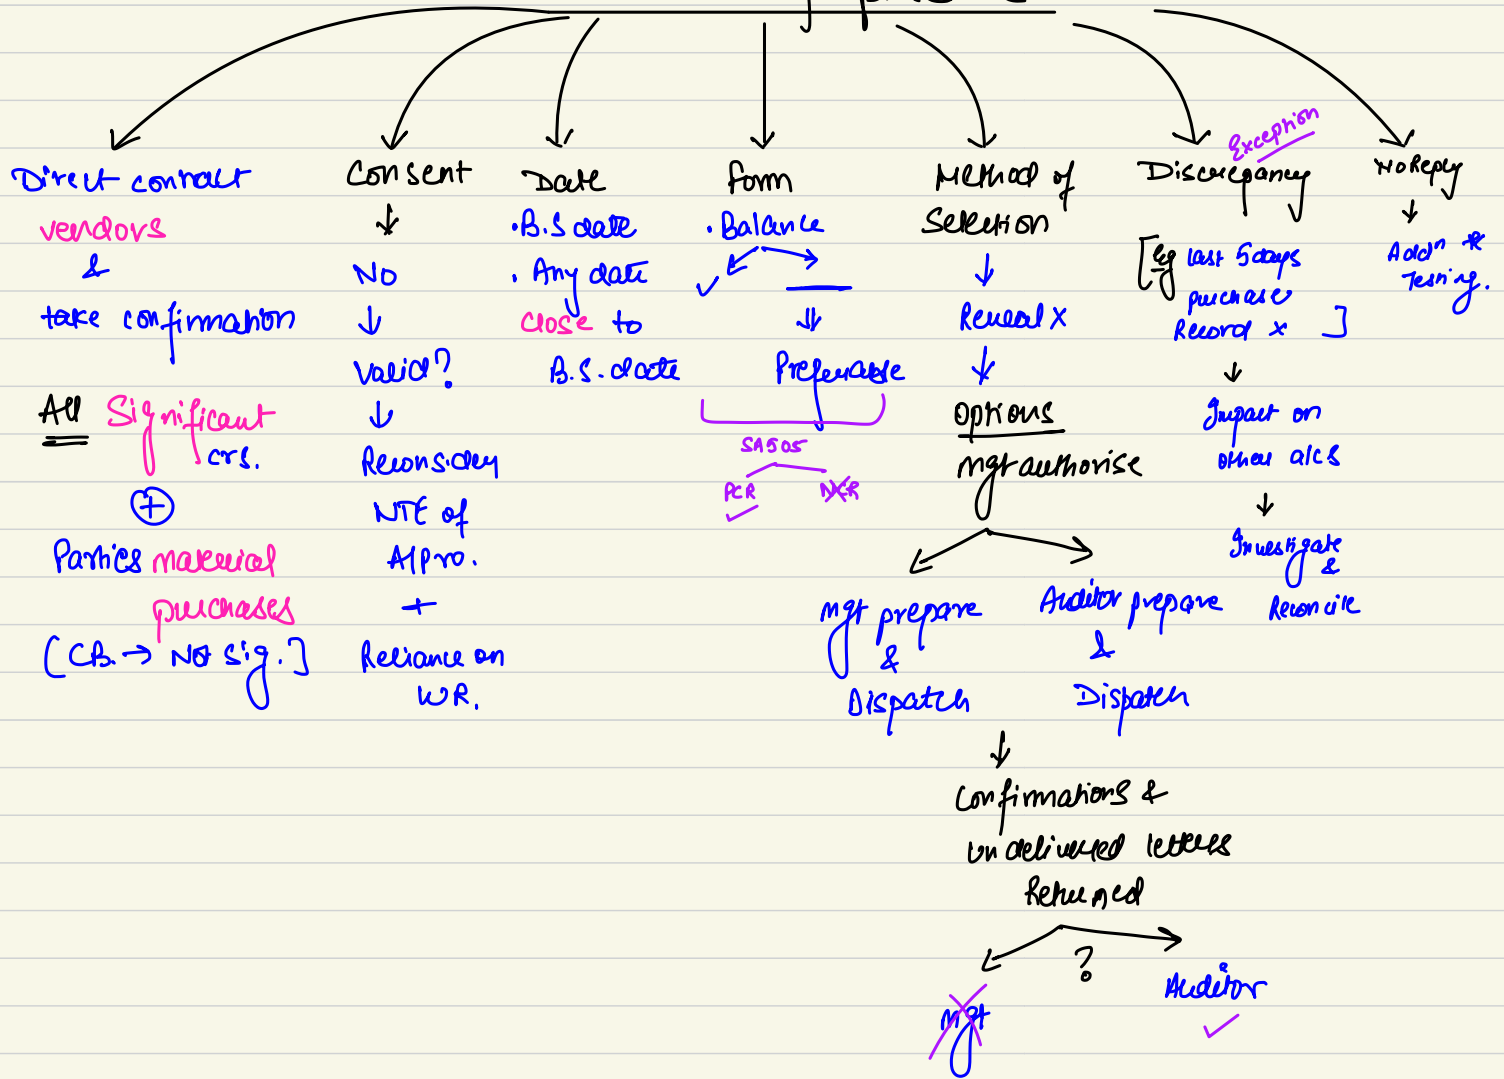 Direct contract
vendors
&
take confirmation
All Significant
crs.
+
Parties material
purchases
[CB. → Not sig.]
Consent
↓
No
↓
Valid?
↓
Reconsider
NTE of
A/pro.
+
Reliance on
WR.
Date
. B.S date
. Any date
close to
B.S. date
form
. Balance
✓
⇓
Preferable
SA505
PCR NCR
✓
Method of
Selection
↓
Reveal x
↓
Options
mgt authorise
mgt prepare
&
Dispatch
Auditor prepare
&
Dispatch
↓
Confirmations &
undelivered letters
Returned
?
Mgt
Auditor
✓
Exception
Discrepancy
[Eg last 5 days
purchase
Record x ]
↓
Impact on
other a/cs
↓
Investigate
&
Reconcile
No Reply
↓
Addn *
Testing.